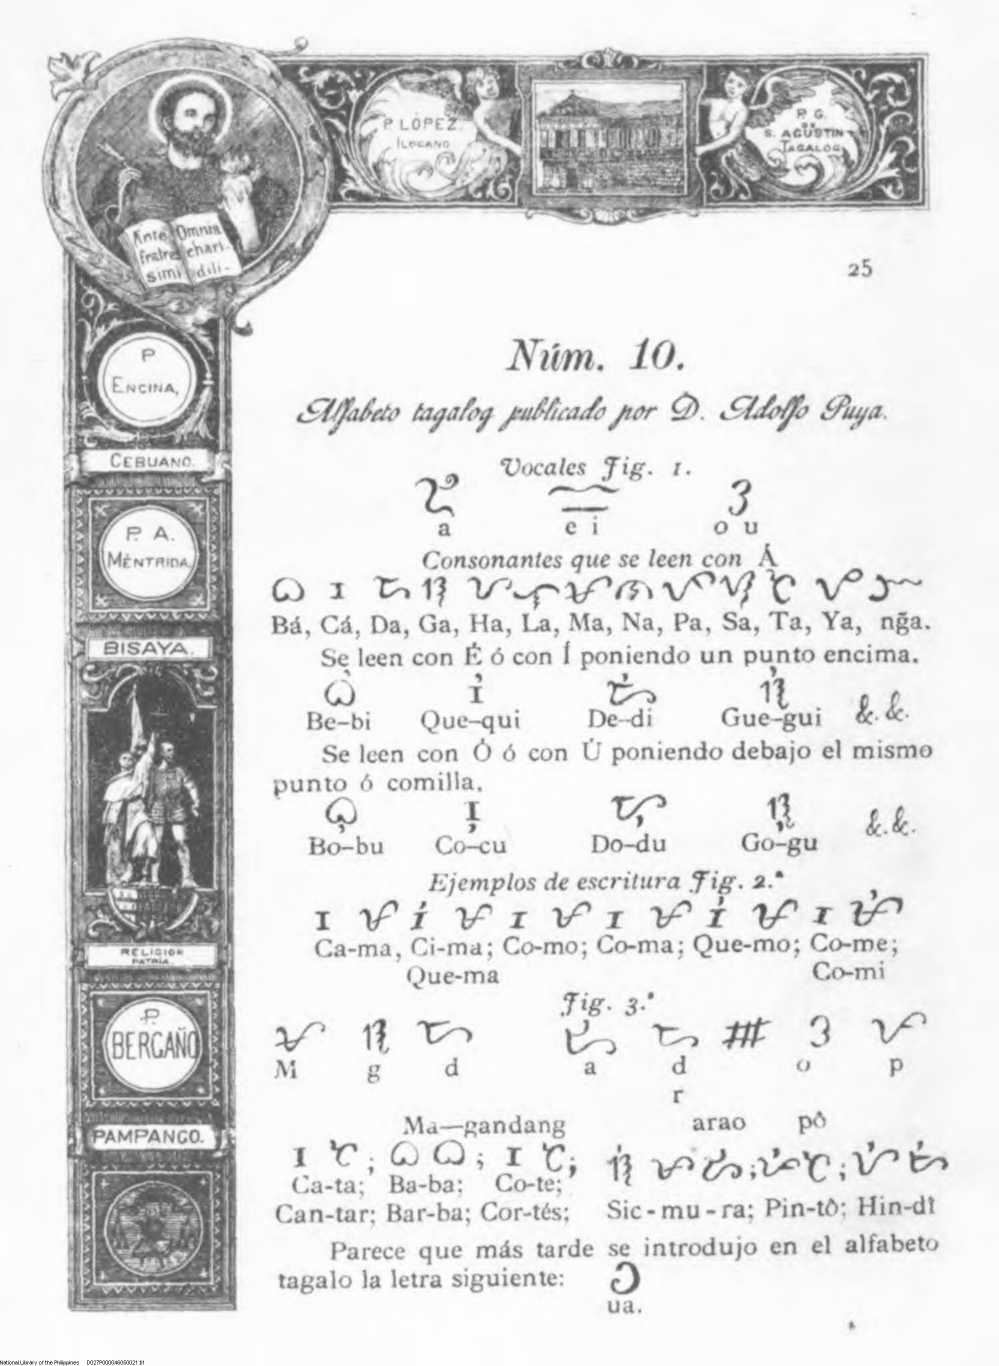 P. LÓPEZ.
ILOCANO
P. G.
DE
S. AGUSTIN
TAGALOG
Ante Omnia
fratres chari-
simi dili-
25
P
ENCINA,
CEBUANO.
P. A.
MÉNTRIDA.
BISAYA.
RELIGION
PATRIA.
P.
BERGAÑO
PAMPANGO.
Núm. 10.
Alfabeto tagalog publicado por D. Adolfo Puya.
Vocales Fig. 1.
a e i o u
Consonantes que se leen con Á
Bá, Cá, Da, Ga, Ha, La, Ma, Na, Pa, Sa, Ta, Ya, ng̃a.
Se leen con É ó con Í poniendo un punto encima.
Be-bi Que-qui De-di Gue-gui &. &.
Se leen con Ó ó con Ú poniendo debajo el mismo
punto ó comilla.
Bo-bu Co-cu Do-du Go-gu &. &.
Ejemplos de escritura Fig. 2.ª
Ca-ma, Ci-ma; Co-mo; Co-ma; Que-mo; Co-me;
Que-ma Co-mi
Fig. 3.ª
M g d a d o p
r
Ma—gandang arao pô
Ca-ta; Ba-ba; Co-te;
Can-tar; Bar-ba; Cor-tés; Sic-mu-ra; Pin-tô; Hin-dî
Parece que más tarde se introdujo en el alfabeto
tagalo la letra siguiente:
ua.
National Library of the Philippines